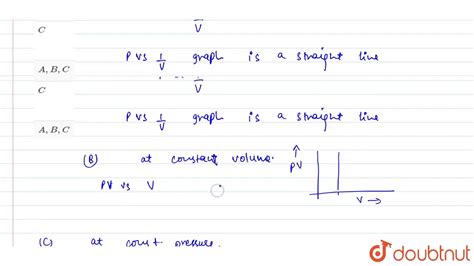 C
V
P vs 1/V graph is a straight line
A, B, C
V
C
P vs 1/V graph is a straight line
A, B, C
(B) at constant volume.
PV vs V
PV
V →
(C) at const pressure.
doubtnut